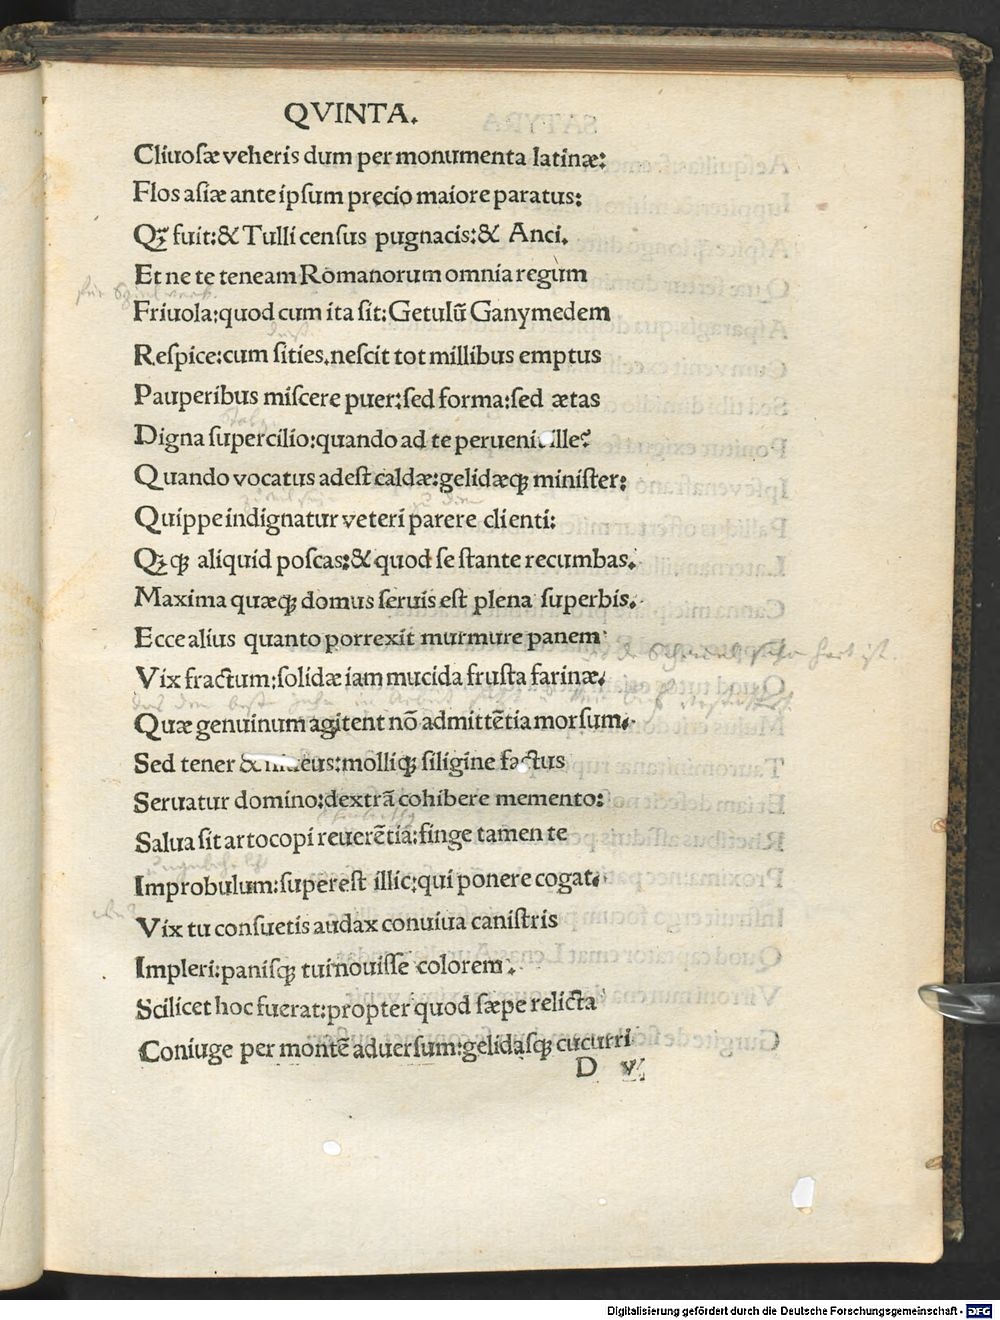 QVINTA.
Cliuoſæ veheris dum per monumenta latinæ:
Flos aſiæ ante ipſum precio maiore paratus:
Qꝫ fuit:& Tulli cenſus pugnacis:& Anci.
Et ne te teneam Romanorum omnia regum
Friuola:quod cum ita ſit:Getulū Ganymedem
Reſpice:cum ſities.neſcit tot millibus emptus
Pauperibus miſcere puer:ſed forma:ſed ætas
Digna ſupercilio:quando ad te peruenit ille?
Quando vocatus adeſt caldæ:gelidæqꝫ miniſter:
Quippe indignatur veteri parere clienti:
Qꝫ qꝫ aliquid poſcas:& quod ſe ſtante recumbas.
Maxima quæqꝫ domus ſeruis eſt plena ſuperbis.
Ecce alius quanto porrexit murmure panem
Vix fractum:ſolidæ iam mucida fruſta farinæ.
Quæ genuinum agitent nō admittētia morſum.
Sed tener & niueus:molliqꝫ ſiligine factus
Seruatur domino:dextrā cohibere memento:
Salua ſit artocopi reuerētia:finge tamen te
Improbulum:ſupereſt illic:qui ponere cogat.
Vix tu conſuetis audax conuiua caniſtris
Impleri:paniſqꝫ tui nouiſſe colorem.
Scilicet hoc fuerat:propter quod ſæpe relicta
Coniuge per montē aduerſum:gelidaſqꝫ cucurri
D v
Digitalisierung gefördert durch die Deutsche Forschungsgemeinschaft - DFG